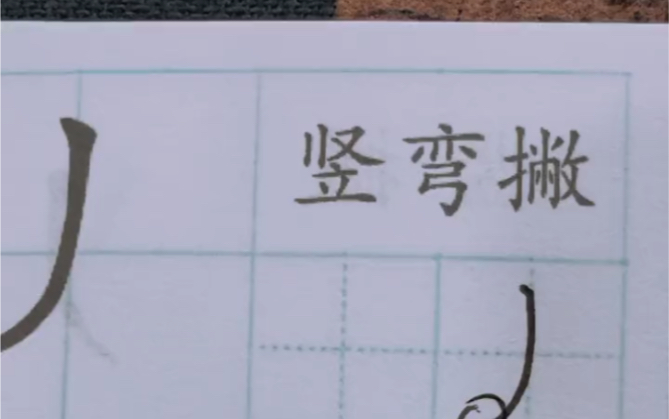 竖弯撇